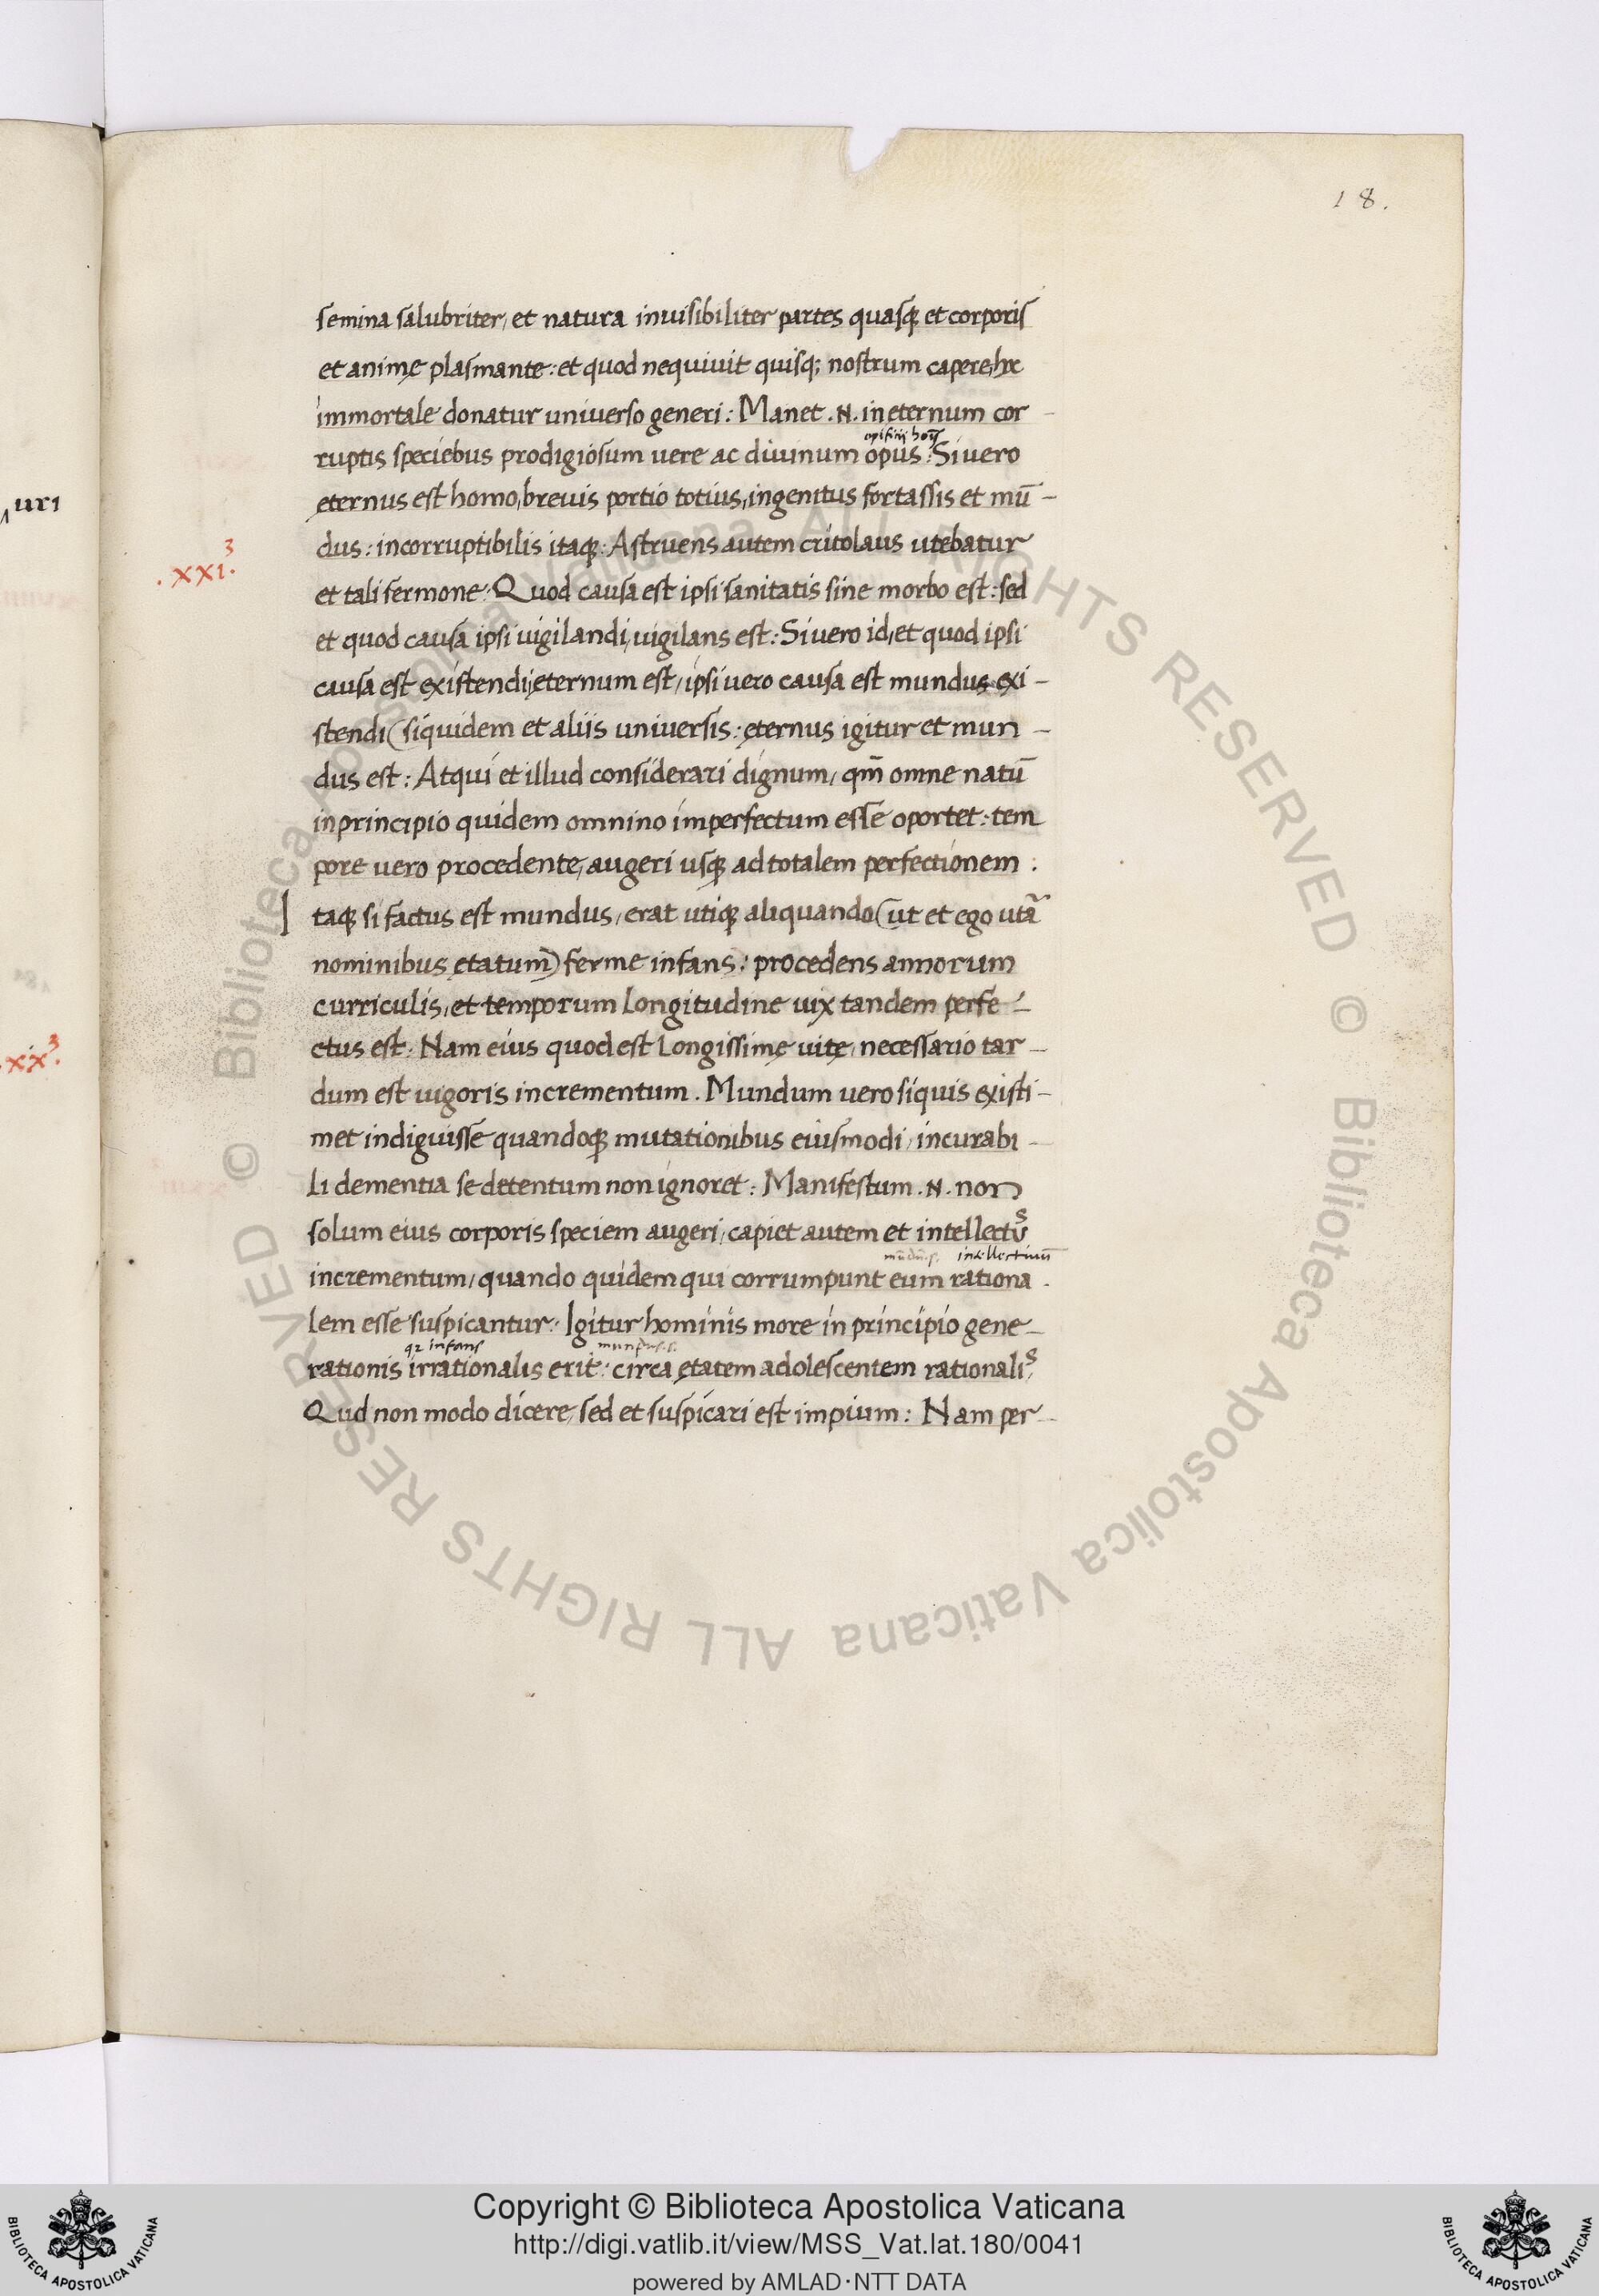 18.
semina salubriter, et natura inuisibiliter partes quasq; et corporis
et animę plasmante: et quod nequiuit quisq; nostrum capere, hc
immortale donatur uniuerso generi: Manet .N. in eternum cor-
opificij hoīs
ruptis speciebus prodigiosum uere ac diuinum opus: Si uero
ęternus est homo, breuis portio totius, ingenitus fortassis et mū-
dus: incorruptibilis itaq;: Astruens autem critolaus utebatur
.xxi.3
et tali sermone: Quod causa est ipsi sanitatis sine morbo est: sed
et quod causa ipsi uigilandi, uigilans est: Si uero id, et quod ipsi
causa est existendi, ęternum est, ipsi uero causa est mundus exi-
stendi (siquidem et aliis uniuersis: ęternus igitur et mun-
dus est: Atqui et illud considerari dignum, qm̄ omne natū
in principio quidem omnino imperfectum esse oportet: tem
pore uero procedente, augeri usq; ad totalem perfectionem:
I taq; si factus est mundus, erat utiq; aliquando (ut et ego utā
nominibus ętatum) ferme infans: procedens annorum
curriculis, et temporum longitudine uix tandem perfe-
ctus est: Nam eius quod est longissimę uitę, necessario tar-
dum est uigoris incrementum. Mundum uero siquis existi-
met indiguisse quandoq; mutationibus eiusmodi, incurabi-
li dementia se detentum non ignoret: Manifestum .N. non
solum eius corporis speciem augeri, capiet autem et intellectus
mūdū.s. intellectiuū
incrementum, quando quidem qui corrumpunt eum rationa-
lem esse suspicantur: Igitur hominis more in principio gene-
qz infans mundus.s.
rationis irrationalis erit: circa ętatem adolescentem rationalis,
Qud non modo dicere, sed et suspicari est impium: Nam per-
uri
xix.3
Copyright © Biblioteca Apostolica Vaticana
http://digi.vatlib.it/view/MSS_Vat.lat.180/0041
powered by AMLAD·NTT DATA
BIBLIOTECA APOSTOLICA VATICANA
BIBLIOTECA APOSTOLICA VATICANA
© Biblioteca Apostolica Vaticana ALL RIGHTS RESERVED © Biblioteca Apostolica Vaticana ALL RIGHTS RESERVED